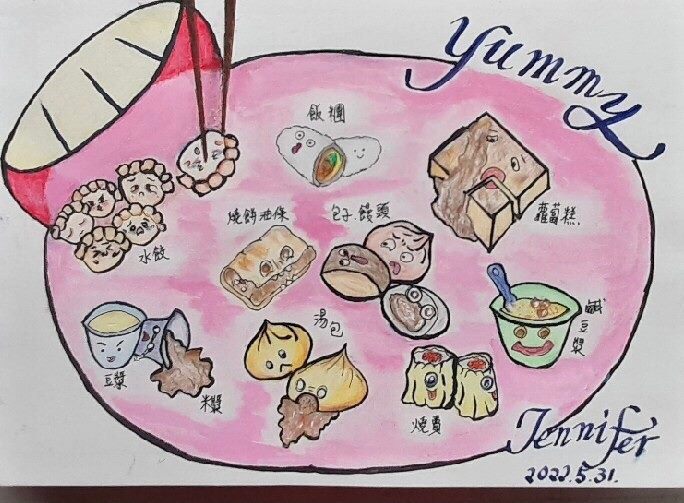 Yummy
飯糰
燒餅油條
包子 饅頭
蘿蔔糕
水餃
鹹豆漿
湯包
豆漿
米漿
燒賣
Jennifer
2022.5.31.